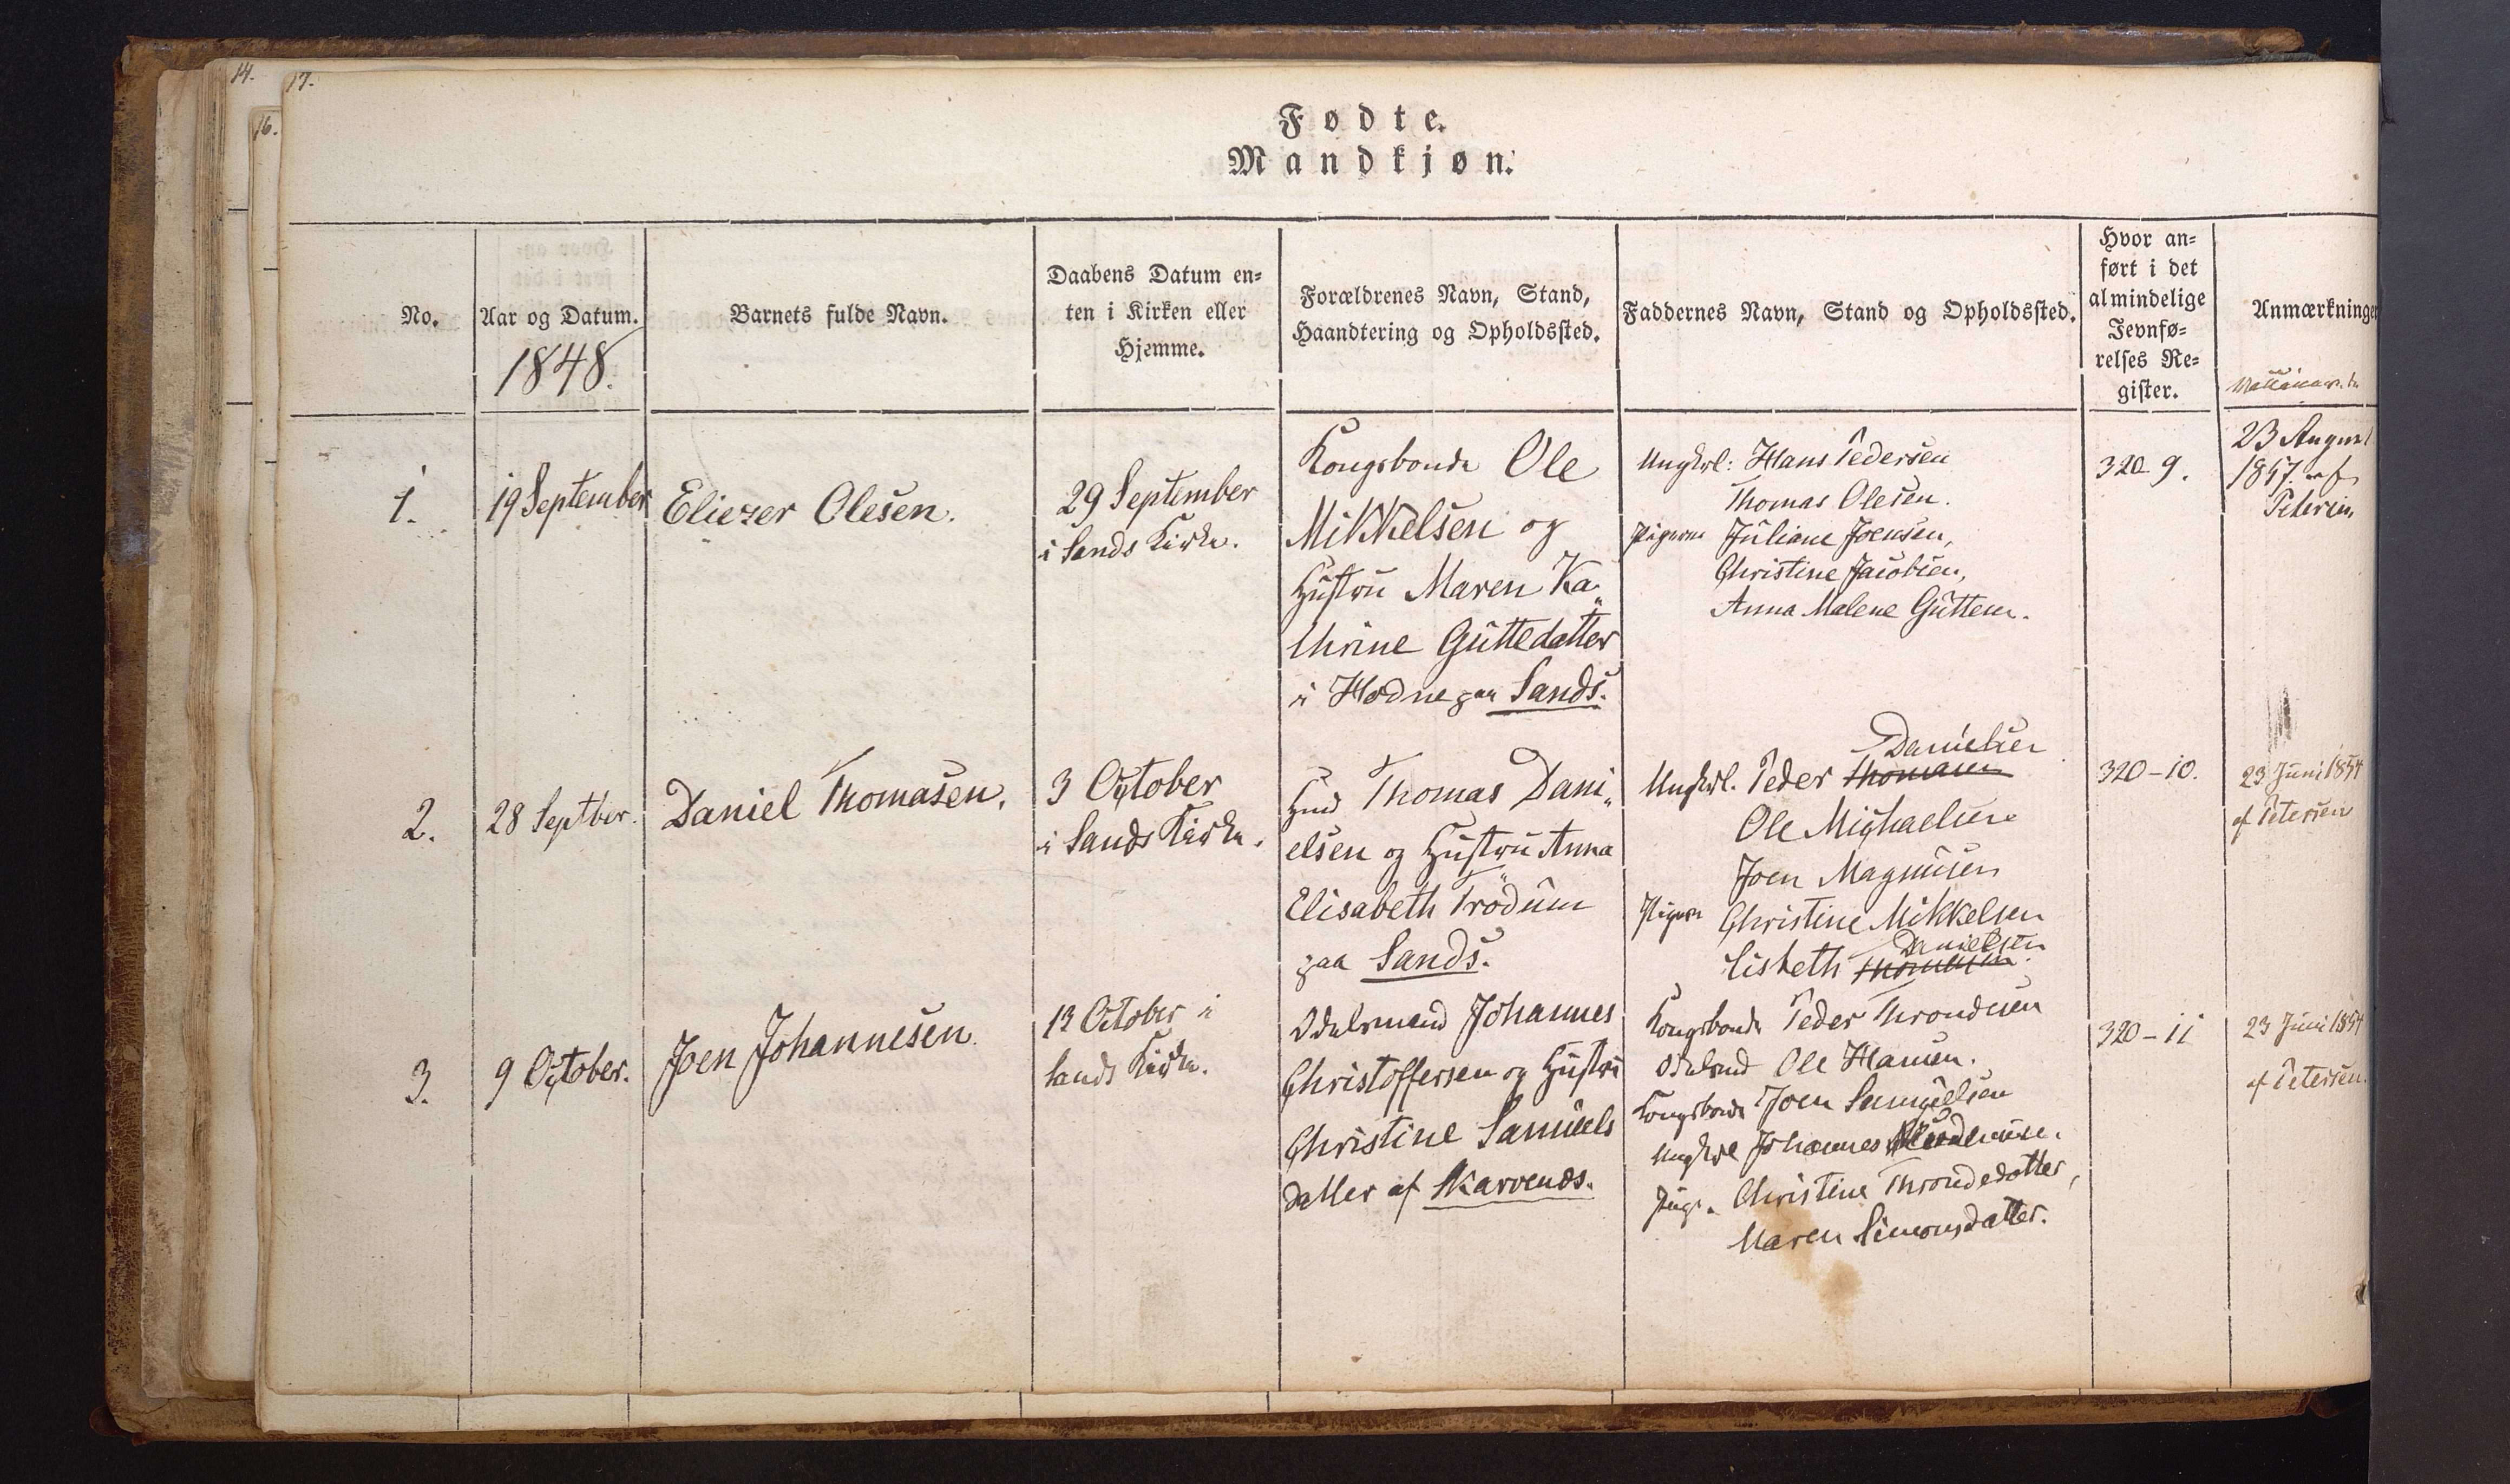 14.
17.
16.
Fødte.
Mandkjøn.
No.
Aar og Datum.
1848.
Barnets fulde Navn.
Daabens Datum en=
ten i Kirken eller
Hjemme.
Forældrenes Navn, Stand,
Haandtering og Opholdssted.
Faddernes Navn, Stand og Opholdssted.
Hvor an=
ført i det
almindelige
Jevnfø=
relses Re=
gister.
Anmærkninger
1.
19 September
Eliezer Olesen.
29 September
i Sands Kirke.
Kongsbonde Ole
Mikkelsen og
Hustru Maren Ka„
thrine Guttedatter
i Hodne paa Sands.
Ungkrl: Hans Pedersen
Thomas Olesen.
Pigerne Juliane Joensen,
Christine Jacobsen,
Anna Malene Guttesen.
320-9.
23 August
1857. af
Petersen
2.
28 Septber.
Daniel Thomasen.
3 October
i Sands Kirke.
Hmd Thomas Dani„
elsen og Hustru Anna
Elisabeth Trödum
paa Sands.
Danielsen
Ungkrl. Peder Thomasen
Ole Michaelsen
Joen Magnusen
Pigerne Christine Mikkelsen
Danielsen
Lisbeth Thomasen.
320-10.
23 Juni 1854
af Petersen
3.
9 October.
Joen Johannesen.
13 October i
Sands Kirke.
Odelsmand Johannes
Christoffersen og Hustru
Christine Samuels
datter af Skarvenæs.
Kongsbonde Peder Throndesen
Odelsmd Ole Hansen.
Kongsbonde Joen Samuelsen
Ungkrl Johannes
Pige. Christine Throndedatter,
Maren Simonsdatter.
320-11
23 Juni 1854
af Petersen.